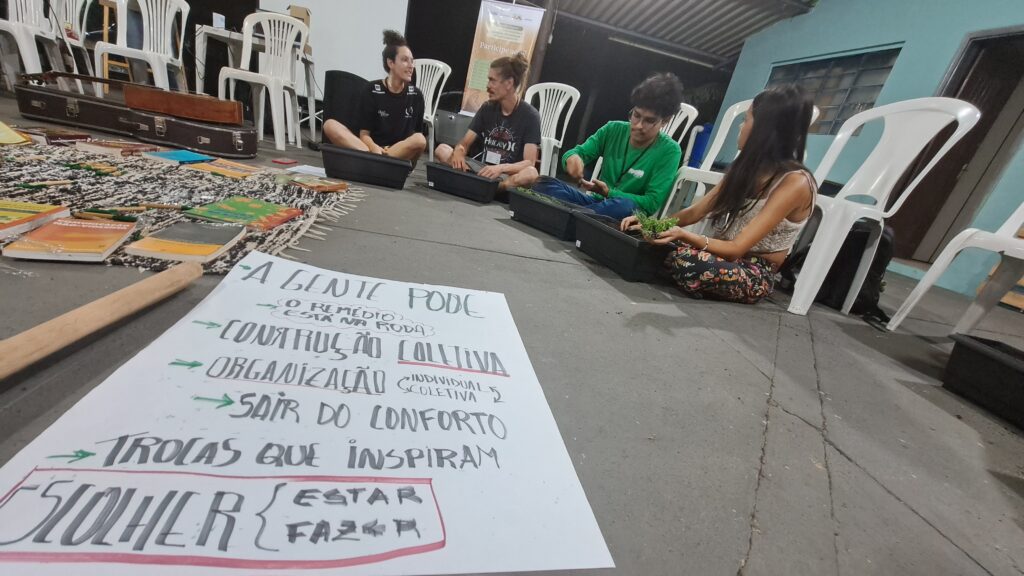 Participe
→ A GENTE PODE
→ O REMÉDIO
ESTÁ NA RODA
→ CONSTRUÇÃO COLETIVA
→ ORGANIZAÇÃO { INDIVIDUAL
COLETIVA
→ SAIR DO CONFORTO
→ TROCAS QUE INSPIRAM
ESCOLHER { ESTAR
FAZER